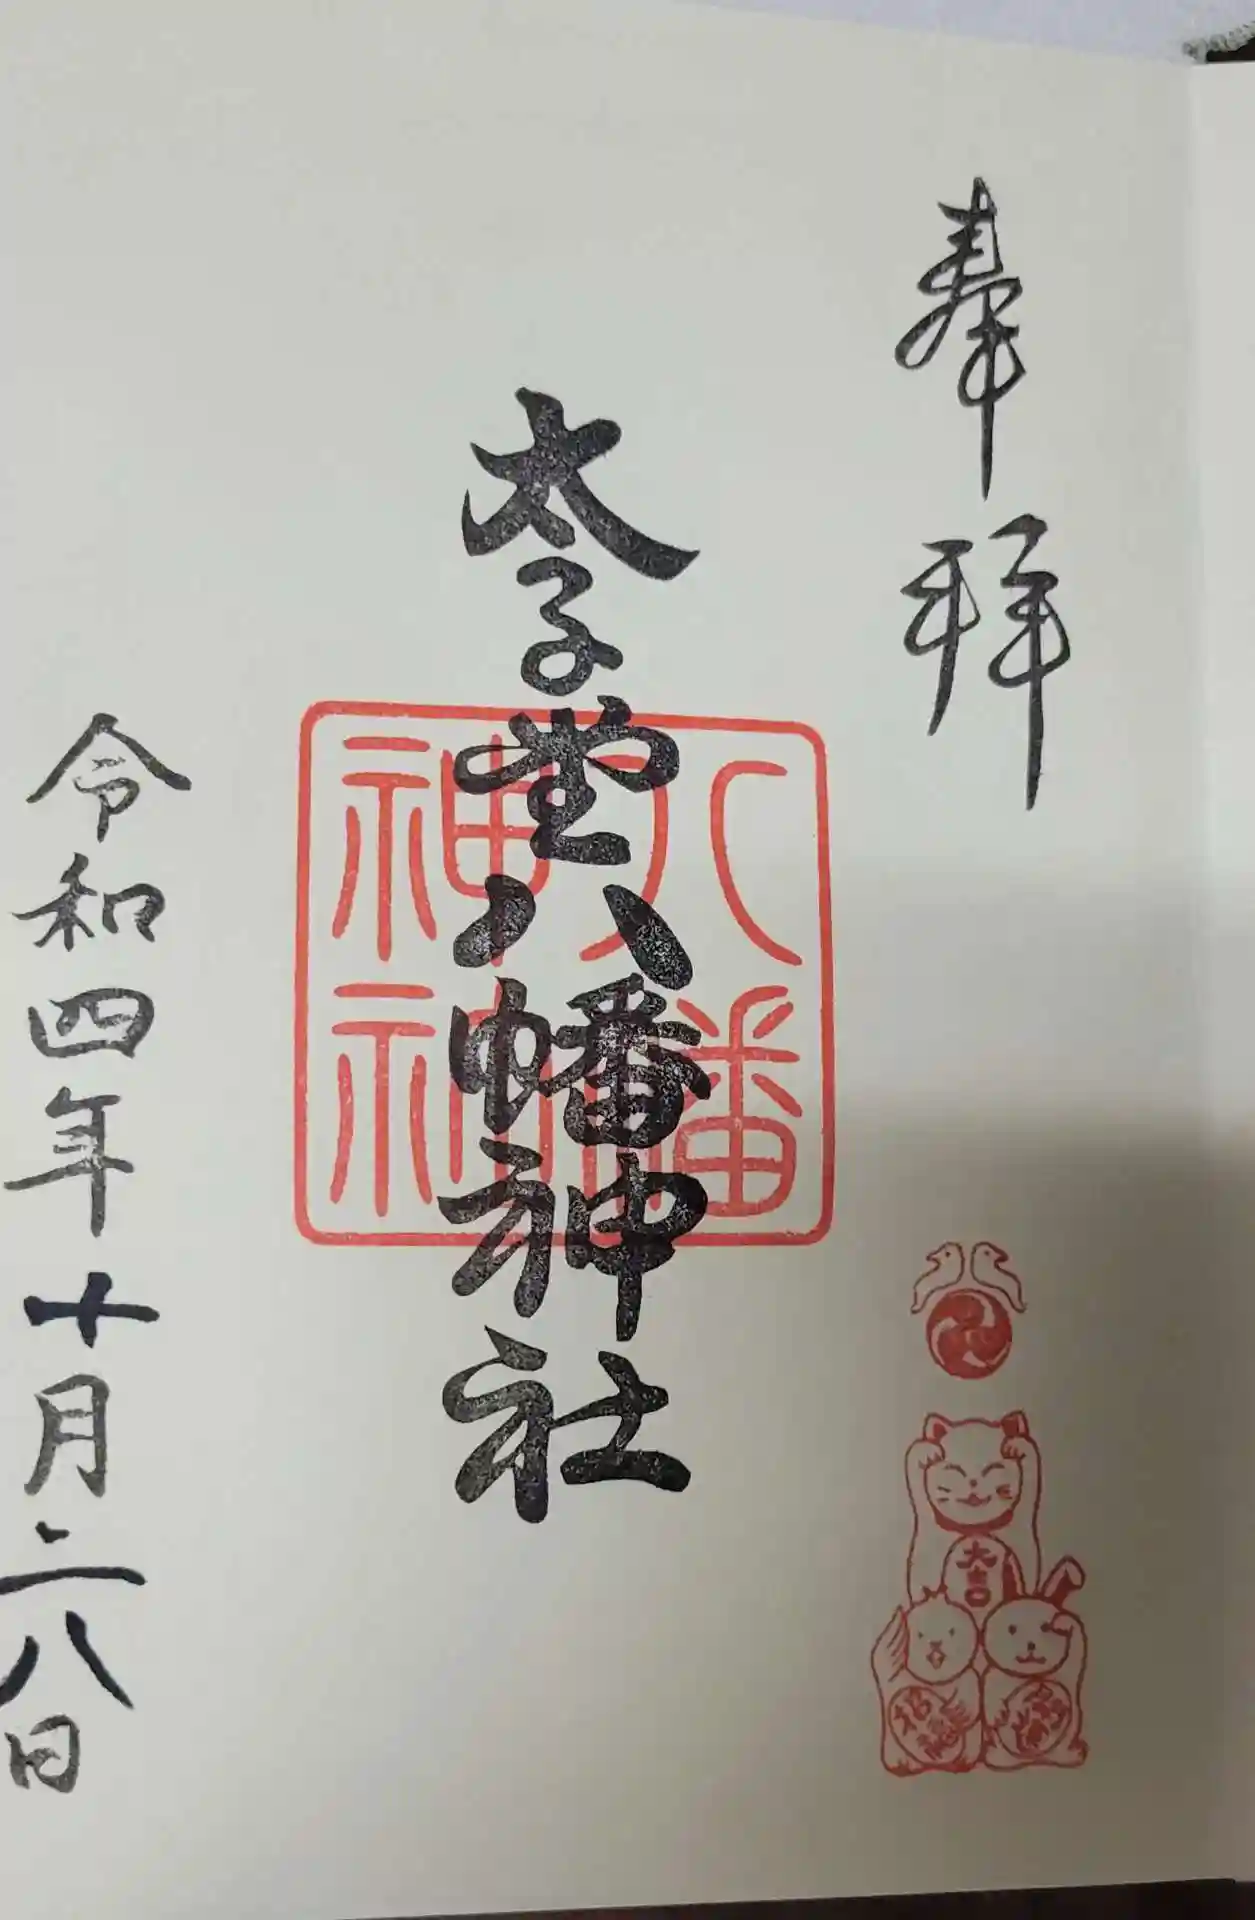 奉拝
太子堂八幡神社
八幡
神社
大吉
令和四年十月二八日